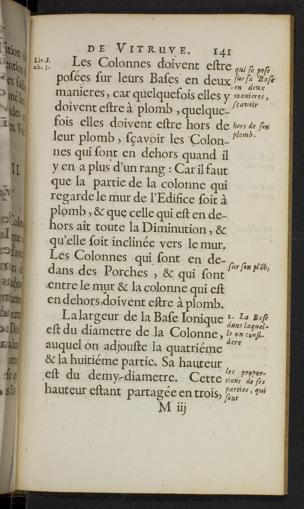 DE VITRUVE. 141
Liv. 3.
ch. 3.
Les Colonnes doivent estre
posées sur leurs Bases en deux
manieres, car quelquefois elles y
doivent estre à plomb, quelque-
fois elles doivent estre hors de
leur plomb, sçavoir les Colon-
nes qui sont en dehors quand il
y en a plus d'un rang : Car il faut
que la partie de la colonne qui
regarde le mur de l'Edifice soit à
plomb, & que celle qui est en de-
hors ait toute la Diminution, &
qu'elle soit inclinée vers le mur.
Les Colonnes qui sont en de-
dans des Porches, & qui sont
entre le mur & la colonne qui est
en dehors doivent estre à plomb.
La largeur de la Base Ionique
est du diametre de la Colonne,
auquel on adjouste la quatriéme
& la huitiéme partie. Sa hauteur
est du demy-diametre. Cette
hauteur estant partagée en trois,
M iij
qui se pose
sur sa Base
en deux
manieres,
sçavoir
hors de son
plomb.
sur son plõb,
2. La Base
dans laquel-
le on consi-
dere
les propor-
tions de ses
parties, qui
sont